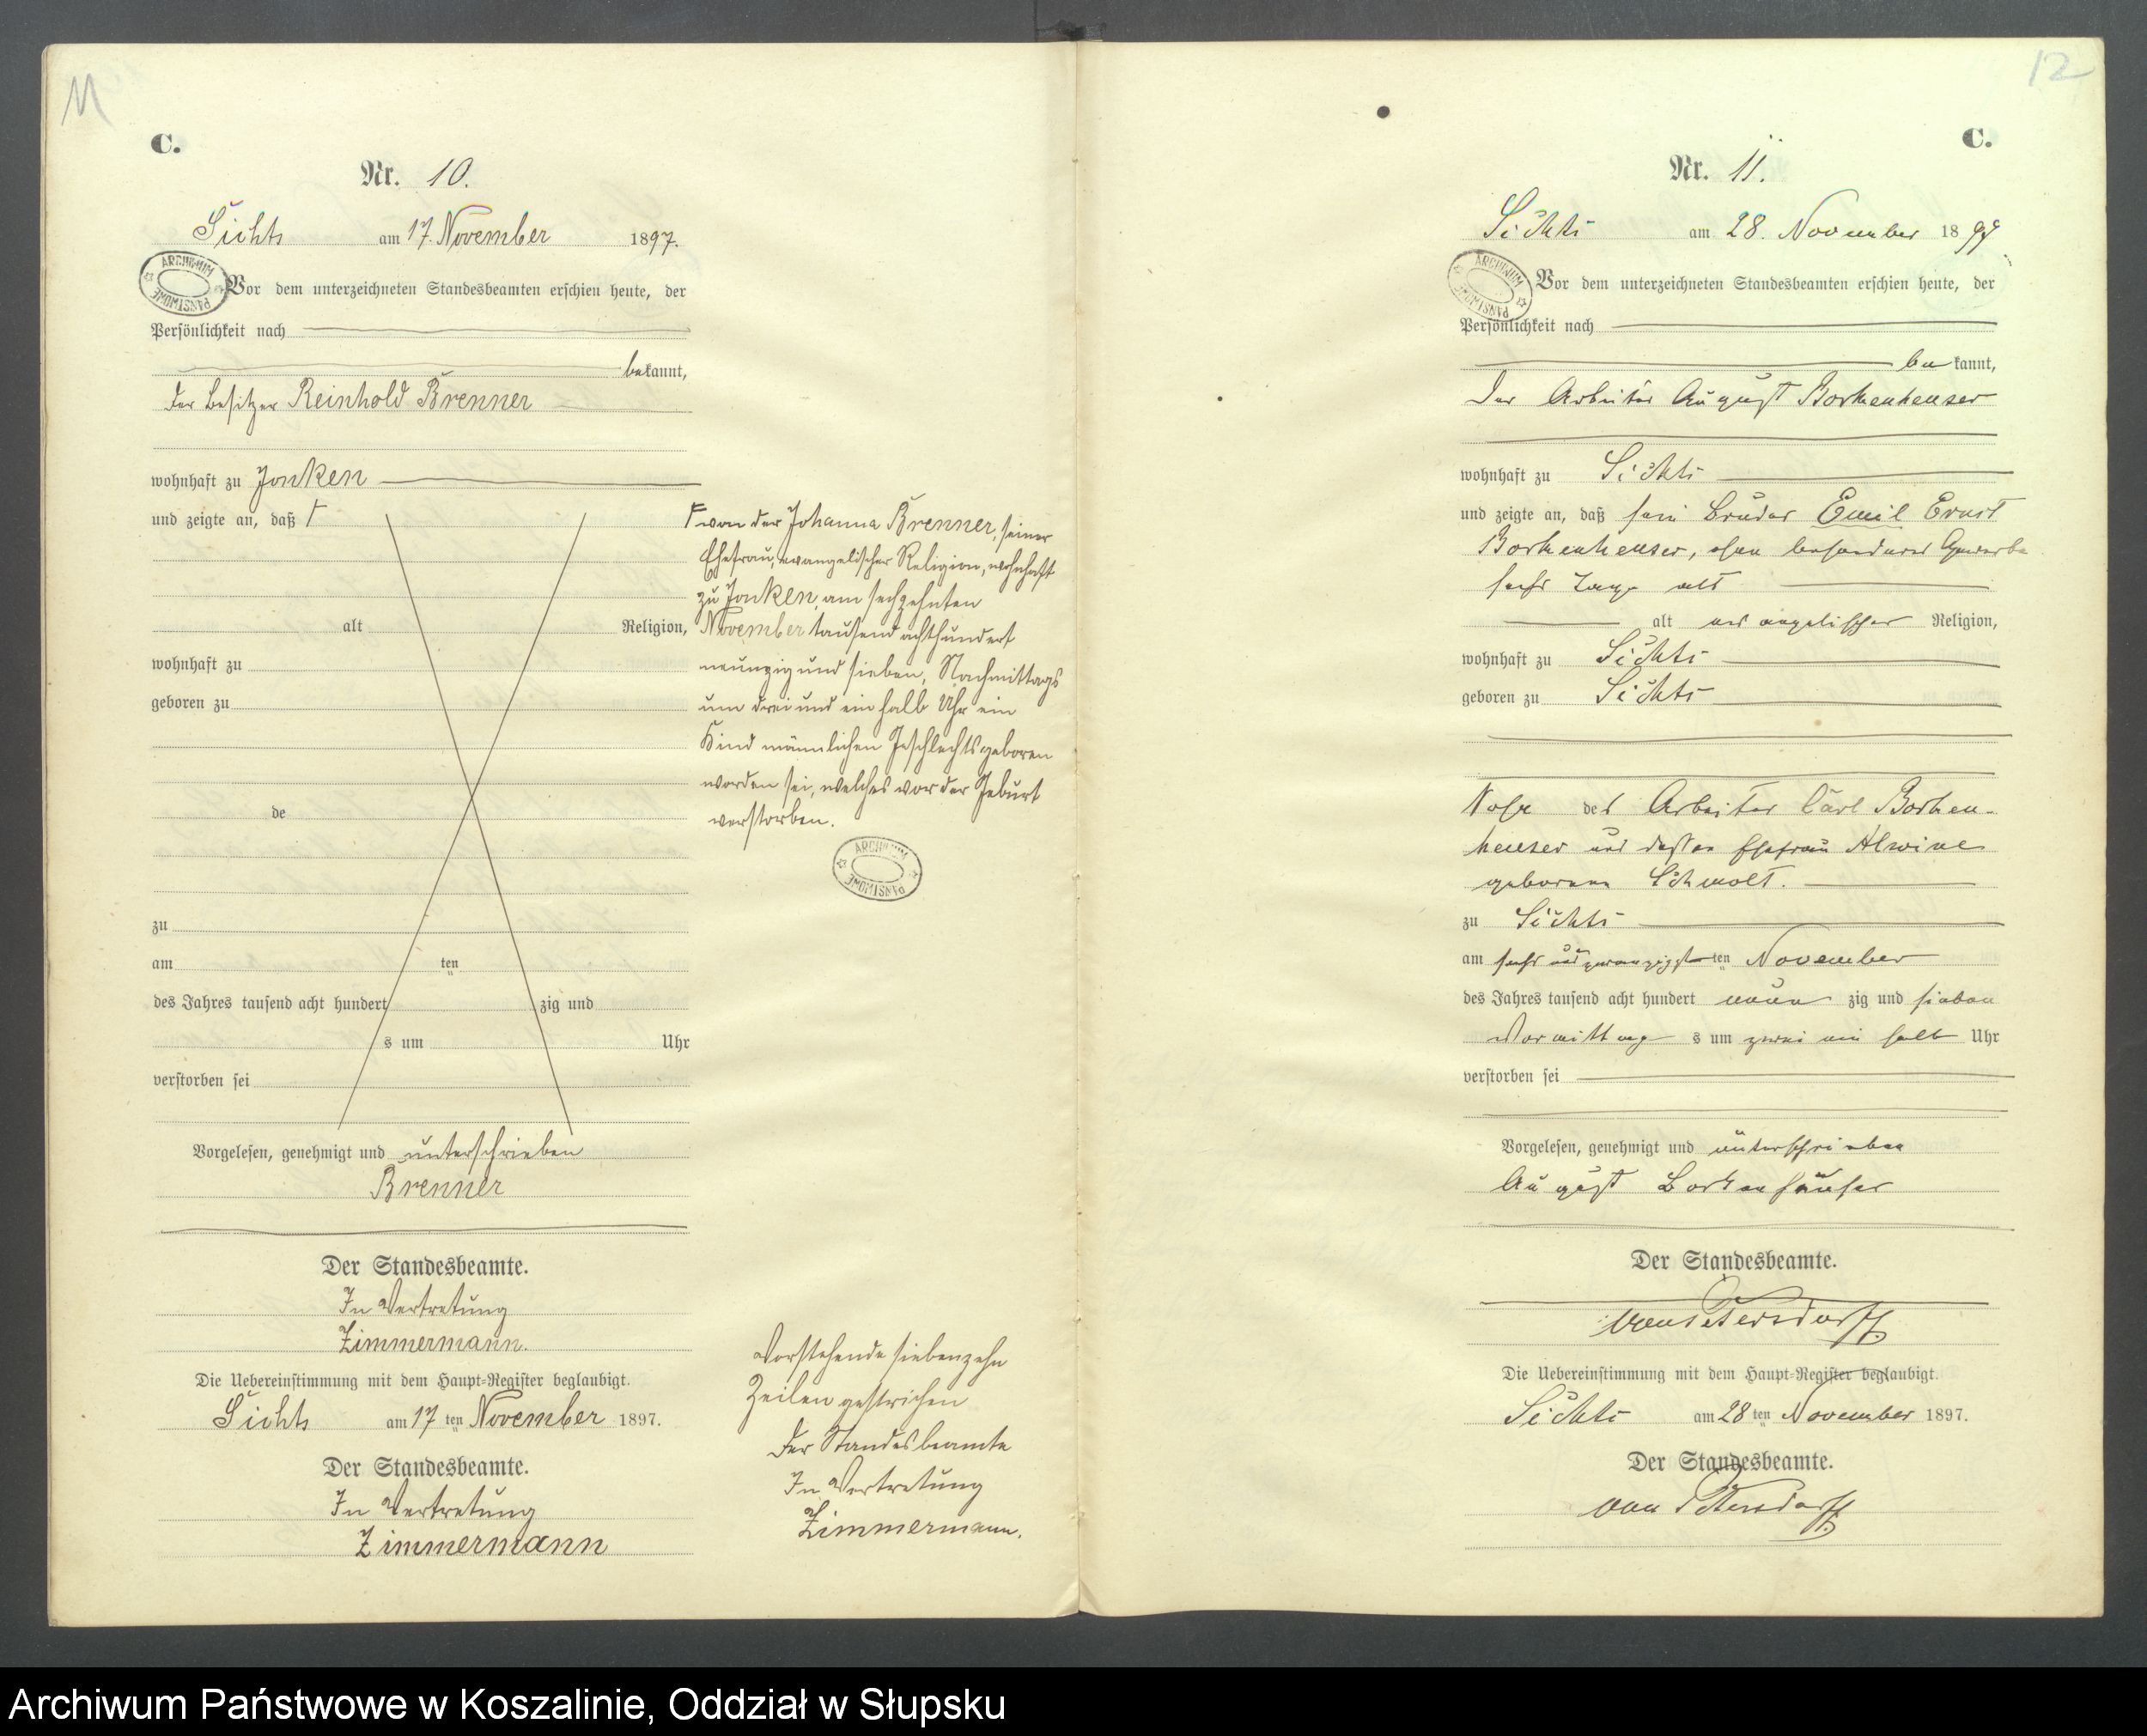 11
C.
Nr. 10.
Sichts am 17. November 1897.
ARCHIWUM PAŃSTWOWE
Vor dem unterzeichneten Standesbeamten erschien heute, der
Persönlichkeit nach
bekannt,
der Besitzer Reinhold Brenner
wohnhaft zu Jonken
und zeigte an, daß
alt Religion,
wohnhaft zu
geboren zu
de
zu
am ten
des Jahres tausend acht hundert zig und
s um Uhr
verstorben sei
Vorgelesen, genehmigt und unterschrieben
Brenner
Der Standesbeamte.
In Vertretung
Zimmermann.
Die Uebereinstimmung mit dem Haupt-Register beglaubigt.
Sichts am 17 ten November 1897.
Der Standesbeamte.
In Vertretung
Zimmermann
von der Johanna Brenner, seiner
Ehefrau, evangelischer Religion, wohnhaft
zu Jonken, am sechzehnten
November tausend achthundert
neunzig und sieben, Nachmittags
um drei und ein halb Uhr ein
Kind männlichen Geschlechts geboren
worden sei, welches vor der Geburt
verstorben.
ARCHIWUM PAŃSTWOWE
Vorstehende siebenzehn
Zeilen gestrichen
Der Standesbeamte
In Vertretung
Zimmermann.
12
C.
Nr. 11.
Sichts am 28. November 1897
ARCHIWUM PAŃSTWOWE
Vor dem unterzeichneten Standesbeamten erschien heute, der
Persönlichkeit nach
be kannt,
Der Arbeiter August Borkenheuser
wohnhaft zu Sichts
und zeigte an, daß sein Bruder Emil Ernst
Borkenheuser, ohne besonderes Gewerbe
sechs Tage alt
alt evangelischer Religion,
wohnhaft zu Sichts
geboren zu Sichts
Sohn des Arbeiter Carl Borken-
heuser und dessen Ehefrau Alwine
geborene Schmolt.
zu Sichts
am sechs und zwanzigsten ten November
des Jahres tausend acht hundert neun zig und sieben
Vormittag s um zwei ein halb Uhr
verstorben sei
Vorgelesen, genehmigt und unterschrieben
August Borkenhäuser
Der Standesbeamte.
von Petersdorff
Die Uebereinstimmung mit dem Haupt-Register beglaubigt.
Sichts am 28 ten November 1897.
Der Standesbeamte.
von Petersdorff
Archiwum Państwowe w Koszalinie, Oddział w Słupsku